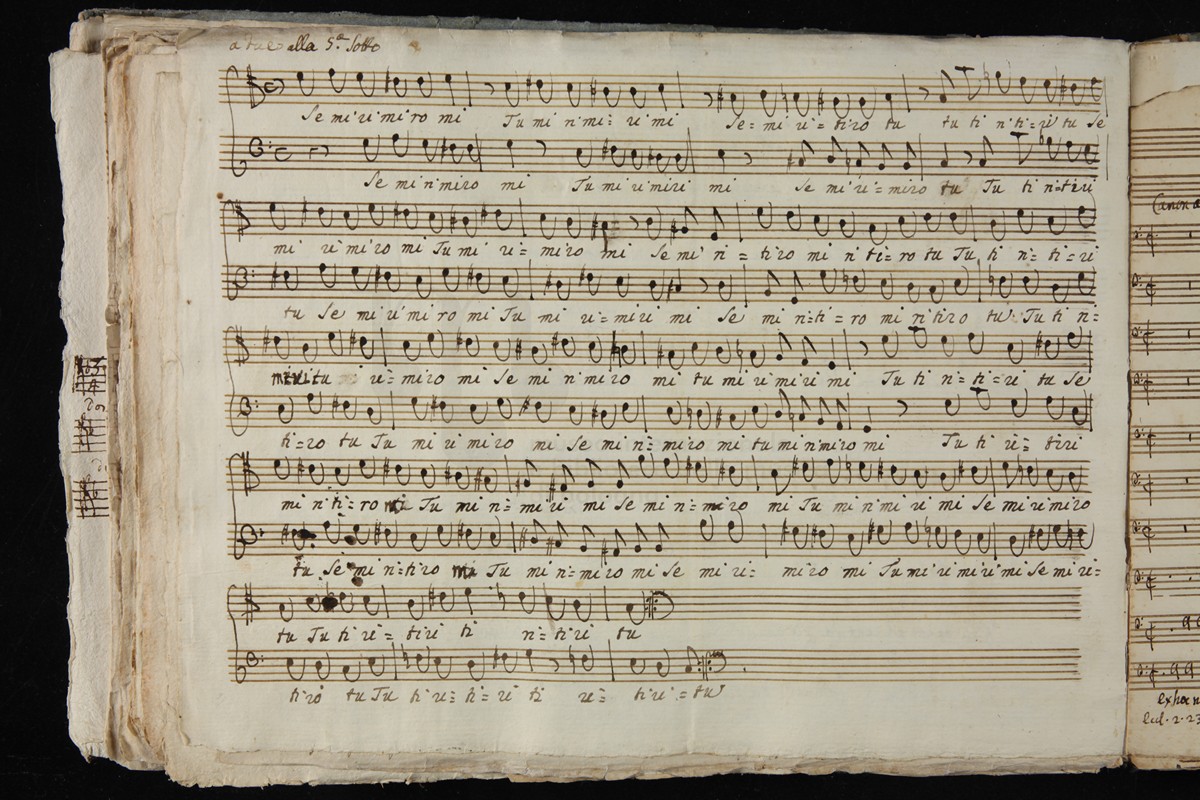 a due alla 5.ta sotto
Se mi ri mi ro mi Tu mi ri mi = ri mi Se = mi ri = ti ro tu tu ti ri ti = ri tu Se
Se mi ri mi ro mi Tu mi ri mi ri mi Se mi ri = mi ro tu Tu ti ri = ti ri
mi ri mi ro mi Tu mi ri = mi ro mi Se mi ri = ti ro mi ri ti = ro tu Tu ti ri = ti = ri
tu Se mi ri mi ro mi Tu mi ri = mi ri mi Se mi ri = ti = ro mi ri ti ro tu Tu ti ri =
tu mi ri = mi ro mi Se mi ri mi ro mi tu mi ri mi ri mi Tu ti ri = ti = ri tu Se
ti = ro tu Tu mi ri mi ro mi Se mi ri = mi ro mi tu mi ri mi ro mi Tu ti ri = ti ri
mi ri ti = ro Tu mi ri = mi ri mi Se mi ri = mi ro mi Tu mi ri mi ri mi Se mi ri mi ro
tu Se mi ri = ti ro Tu mi ri = mi ro mi Se mi ri = mi ro mi Tu mi ri mi ri mi Se mi ri =
tu Tu ti ri = ti ri ti ri = ti ri tu
ti ro tu Tu ti ri = ti = ri ti ri = ti ri = tu
Canon a
ex hoc n